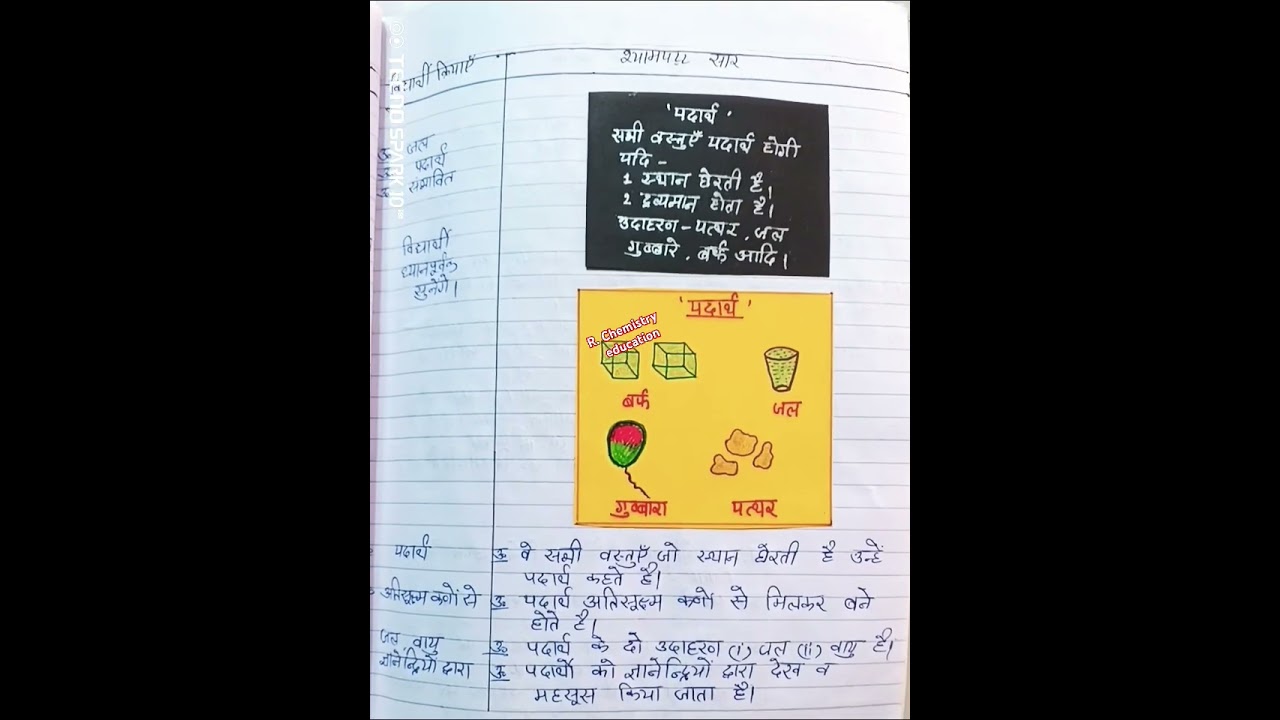 विद्यार्थी क्रियाएँ
श्यामपट्ट सार
उ॰ जल
उ॰ पदार्थ
उ॰ संभावित
विद्यार्थी
ध्यानपूर्वक
सुनेंगे।
'पदार्थ'
सभी वस्तुएँ पदार्थ होगी
यदि -
1 स्थान घेरती है।
2 द्रव्यमान होता है।
उदाहरण - पत्थर, जल
गुब्बारे, बर्फ आदि।
'पदार्थ'
R. Chemistry
education
बर्फ
जल
गुब्बारा
पत्थर
पदार्थ
उ॰ वे सभी वस्तुएँ जो स्थान घेरती है उन्हें
पदार्थ कहते है।
अतिसूक्ष्म कणों से
उ॰ पदार्थ अतिसूक्ष्म कणों से मिलकर बने
होते है।
जल, वायु
उ॰ पदार्थ के दो उदाहरण (i) जल (ii) वायु है।
ज्ञानेन्द्रियों द्वारा
उ॰ पदार्थो को ज्ञानेन्द्रियों द्वारा देख व
महसूस किया जाता है।
TECNO SPARK 10